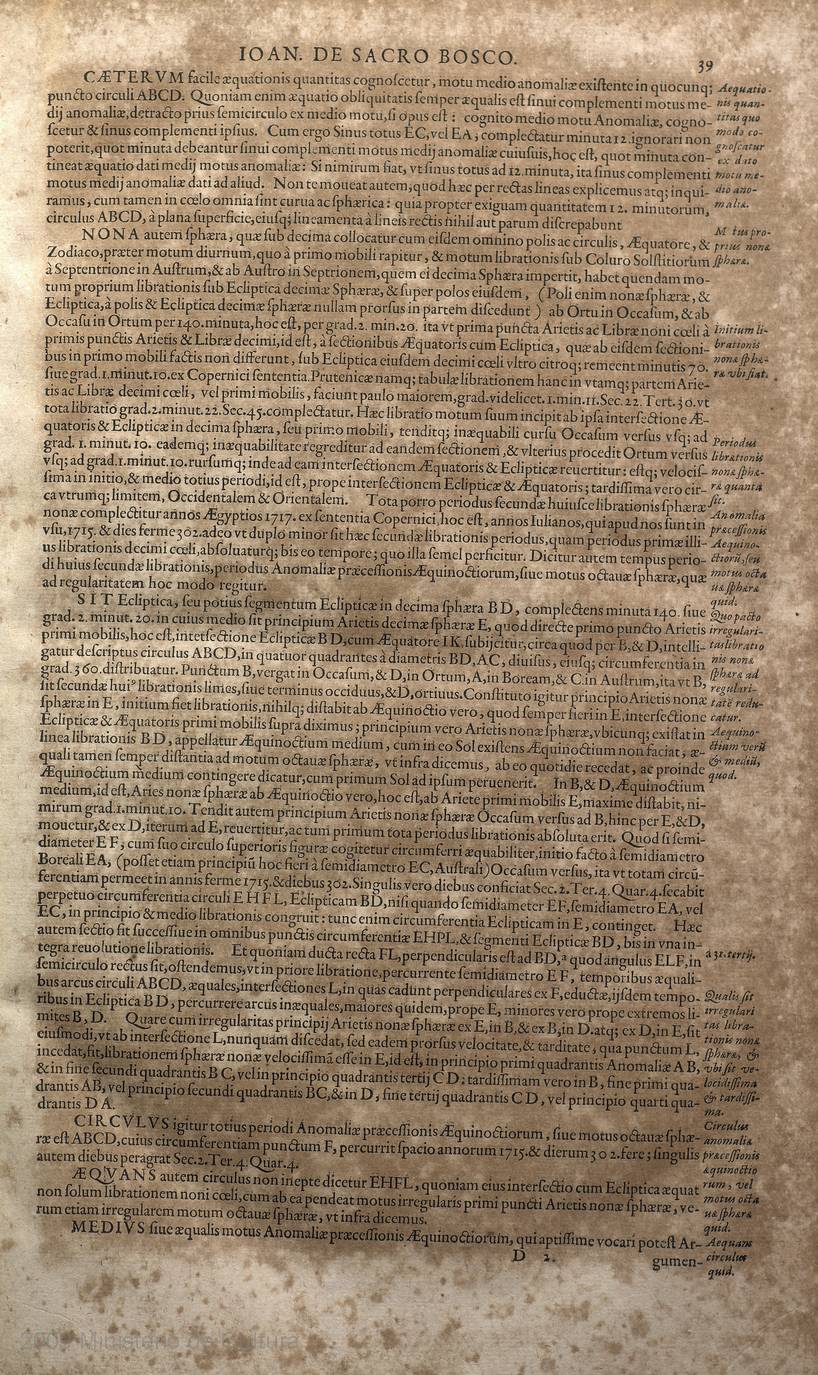 IOAN. DE SACRO BOSCO.
39
CÆTERVM facile æquationis quantitas cognoſcetur, motu medio anomaliæ exiſtente in quocunq;
puncto circuli ABCD. Quoniam enim æquatio obliquitatis ſemper æqualis eſt ſinui complementi motus me-
dij anomaliæ, detracto prius ſemicirculo ex medio motu, ſi opus eſt: cognito medio motu Anomaliæ, cogno-
ſcetur & ſinus complementi ipſius. Cum ergo Sinus totus EC, vel EA, complectatur minuta 12. ignorari non
poterit, quot minuta debeantur ſinui complementi motus medij anomaliæ cuiuſuis, hoc eſt, quot minuta con-
tineat æquatio dati medij motus anomaliæ: Si nimirum fiat, vt ſinus totus ad 12. minuta, ita ſinus complementi
motus medij anomaliæ dati ad aliud. Non te moueat autem, quod hæc per rectas lineas explicemus atq; inqui-
ramus, cum tamen in cœlo omnia ſint curua ac ſphærica: quia propter exiguam quantitatem 12. minutorum,
circulus ABCD, à plana ſuperficie, eiuſq; lineamenta à lineis rectis nihil aut parum diſcrepabunt
Aequatio-
nis quan-
titas quo
modo co-
gnoſcatur
ex dato
motu me-
dio ano-
maliæ.
NONA autem ſphæra, quæ ſub decima collocatur cum eiſdem omnino polis ac circulis, Æquatore, &
Zodiaco, præter motum diurnum, quo à primo mobili rapitur, & motum librationis ſub Coluro Solſtitiorum
à Septentrione in Auſtrum, & ab Auſtro in Septrionem, quem ei decima Sphæra impertit, habet quendam mo-
tum proprium librationis ſub Ecliptica decimæ Sphæræ, & ſuper polos eiuſdem, (Poli enim nonæ ſphæræ, &
Ecliptica, à polis & Ecliptica decimæ ſphæræ nullam prorſus in partem diſcedunt) ab Ortu in Occaſum, & ab
Occaſu in Ortum per 140. minuta, hoc eſt, per grad. 2. min. 20. ita vt prima puncta Arietis ac Libræ noni cœli à
primis punctis Arietis & Libræ decimi, id eſt, à ſectionibus Æquatoris cum Ecliptica, quæ ab eiſdem ſectioni-
bus in primo mobili factis non differunt, ſub Ecliptica eiuſdem decimi cœli vltro citroq; remeent minutis 70.
ſiue grad. 1. minut. 10. ex Copernici ſententia. Prutenicæ namq; tabulæ librationem hanc in vtamq; partem Arie-
tis ac Libræ decimi cœli, vel primi mobilis, faciunt paulo maiorem, grad. videlicet. 1. min. 11. Sec. 22. Tert. 30. vt
tota libratio grad. 2. minut. 22. Sec. 45. complectatur. Hæc libratio motum ſuum incipit ab ipſa interſectione Æ-
quatoris & Eclipticæ in decima ſphæra, ſeu primo mobili, tenditq; inæquabili curſu Occaſum verſus vſq; ad
grad. 1. minut. 10. eademq; inæquabilitate regreditur ad eandem ſectionem, & vlterius procedit Ortum verſus
vſq; ad grad. 1. minut. 10. rurſumq; inde ad eam interſectionem Æquatoris & Eclipticæ reuertitur: eſtq; velociſ-
ſima in initio, & medio totius periodi, id eſt, prope interſectionem Eclipticæ & Æquatoris; tardiſſima vero cir-
ca vtrumq; limitem, Occidentalem & Orientalem. Tota porro periodus ſecundæ huiuſce librationis ſphæræ
nonæ complectitur annos Ægyptios 1717. ex ſententia Copernici, hoc eſt, annos Iulianos, qui apud nos ſunt in
vſu, 1715. & dies ferme 302. adeo vt duplo minor ſit hæc ſecundæ librationis periodus, quam periodus primæ illi-
us librationis decimi cœli, abſoluaturq; bis eo tempore; quo illa ſemel perficitur. Dicitur autem tempus perio-
di huius ſecundæ librationis, periodus Anomaliæ præceſſionis Æquinoctiorum, ſiue motus octauæ ſphæræ, quæ
ad regularitatem hoc modo regitur.
Motus pro-
prius nonæ
ſphæræ.
Initium li-
brationis
nonæ ſphæ-
ræ vbi fiat.
Periodus
librationis
nonæ ſphæ-
ræ quanta
ſit.
Anomalia
præceſſionis
Aequino-
ctiorū, ſeu
motus octa
uæ ſphæræ
quid.
SIT Ecliptica, ſeu potius ſegmentum Eclipticæ in decima ſphæra BD, complectens minuta 140. ſiue
grad. 2. minut. 20. in cuius medio ſit principium Arietis decimæ ſphæræ E, quod directe primo puncto Arietis
primi mobilis, hoc eſt, intetſectione Eclipticæ BD, cum Æquatore IK. ſubijcitur, circa quod per B, & D, intelli-
gatur deſcriptus circulus ABCD, in quatuor quadrantes à diametris BD, AC, diuiſus, eiuſq; circumferentia in
grad. 360. diſtribuatur. Punctum B, vergat in Occaſum, & D, in Ortum, A, in Boream, & C. in Auſtrum, ita vt B,
ſit ſecundæ huiꝰ librationis limes, ſiue terminus occiduus, & D, ortiuus. Conſtituto igitur principio Arietis nonæ
ſphæræ in E, initium fiet librationis, nihilq; diſtabit ab Æquinoctio vero, quod ſemper fieri in E, interſectione
Eclipticæ & Æquatoris primi mobilis ſupra diximus; principium vero Arietis nonæ ſphæræ, vbicunq; exiſtat in
linea librationis BD, appellatur Æquinoctium medium, cum in eo Sol exiſtens Æquinoctium non faciat, æ-
quali tamen ſemper diſtantia ad motum octauæ ſphæræ, vt infra dicemus, ab eo quotidie recedat, ac proinde
Æquinoctium medium contingere dicatur, cum primum Sol ad ipſum peruenerit. In B, & D, Æquinoctium
medium, id eſt, Aries nonæ ſphæræ ab Æquinoctio vero, hoc eſt, ab Ariete primi mobilis E, maxime diſtabit, ni-
mirum grad. 1. minut. 10. Tendit autem principium Arietis nonæ ſphæræ Occaſum verſus ad B, hinc per E, & D,
mouetur, & ex D, iterum ad E, reuertitur, ac tum primum tota periodus librationis abſoluta erit. Quod ſi ſemi-
diameter EF, cum ſuo circulo ſuperioris figuræ cogitetur circumferri æquabiliter, initio facto à ſemidiametro
Boreali EA, (poſſet etiam principiū hoc fieri à ſemidiametro EC, Auſtrali) Occaſum verſus, ita vt totam circū-
ferentiam permeet in annis ferme 1715. & diebus 302. Singulis vero diebus conficiat Sec. 2. Ter. 4. Quar. 4. ſecabit
perpetuo circumferentia circuli EHFL, Eclipticam BD, niſi quando ſemidiameter EF, ſemidiametro EA, vel
EC, in principio & medio librationis congruit: tunc enim circumferentia Eclipticam in E, continget. Hæc
autem ſectio fit ſucceſſiue in omnibus punctis circumferentiæ EHPL, & ſegmenti Eclipticæ BD, bis in vna in-
tegra reuolutione librationis. Et quoniam ducta recta FL, perpendicularis eſt ad BD, ᵃ quod angulus ELF, in
ſemicirculo rectus ſit, oſtendemus, vt in priore libratione, percurrente ſemidiametro EF, temporibus æquali-
bus arcus circuli ABCD, æquales, interſectiones L, in quas cadunt perpendiculares ex F, eductæ, ijſdem tempo-
ribus in Ecliptica BD, percurrere arcus inæquales, maiores quidem, prope E, minores vero prope extremos li-
mites B, D. Quare cum irregularitas principij Arietis nonæ ſphæræ ex E, in B, & ex B, in D. atq; ex D, in E, ſit
eiuſmodi, vt ab interſectione L, nunquam diſcedat, ſed eadem prorſus velocitate, & tarditate, qua punctum L,
incedat, fit, librationem ſphæræ nonæ velociſſimā eſſe in E, id eſt, in principio primi quadrantis Anomaliæ AB,
& in fine ſecundi quadrantis BC, vel in principio quadrantis tertij CD; tardiſſimam vero in B, fine primi qua-
drantis AB, vel principio ſecundi quadrantis BC, & in D, fine tertij quadrantis CD, vel principio quarti qua-
drantis DA.
Quo pacto
irregulari-
tas libratio
nis nonæ
ſphæræ ad
regulari-
tatē redu-
catur.
Aequino-
ctium verū
& mediū,
quod.
a 31. tertij.
Qualis ſit
irregulari
tas libra-
tionis nonæ
ſphæræ, &
vbi ſit ve-
lociſſima
& tardiſſi-
ma.
CIRCVLVS igitur totius periodi Anomaliæ præceſſionis Æquinoctiorum, ſiue motus octauæ ſphæ-
ræ eſt ABCD, cuius circumferentiam punctum F, percurrit ſpacio annorum 1715. & dierum 302. fere; ſingulis
autem diebus peragrat Sec. 2. Ter. 4. Quar. 4.
ÆQVANS autem circulus non inepte dicetur EHFL, quoniam eius interſectio cum Ecliptica æquat
non ſolum librationem noni cœli, cum ab ea pendeat motus irregularis primi puncti Arietis nonæ ſphæræ, ve-
rum etiam irregularem motum octauæ ſphæræ, vt infra dicemus.
MEDIVS ſiue æqualis motus Anomaliæ præceſſionis Æquinoctiorum, qui aptiſſime vocari poteſt Ar-
Circulus
anomaliæ
præceſſionis
æquinoctio
rum, vel
motus octa
uæ ſphæræ
quid.
Aequans
circulus
quid.
D 2.
gumen-
2009 Ministerio de Cultura